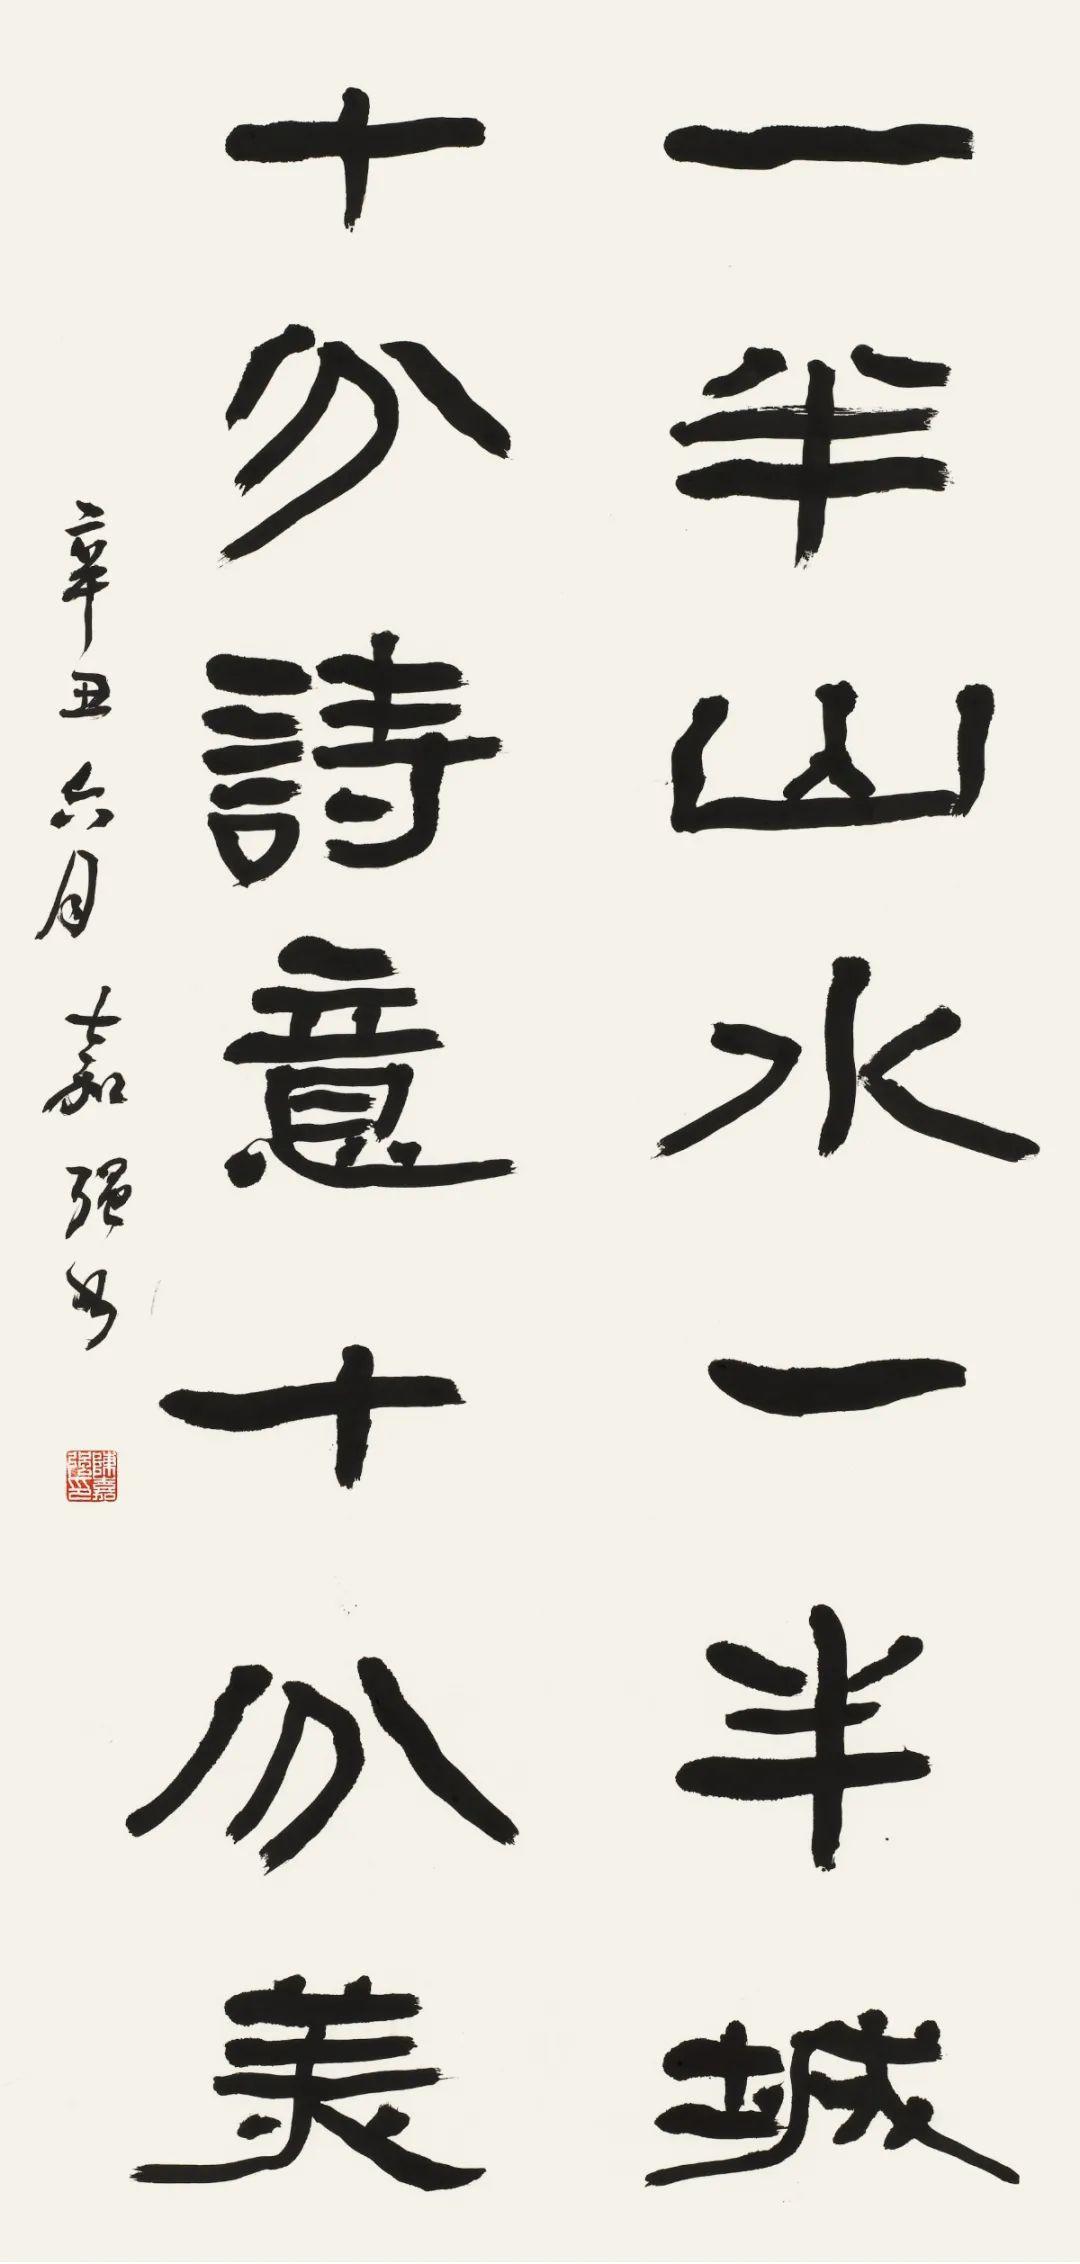 一半山水一半城
十分詩意十分美
辛丑六月嘉强书
陳嘉强印